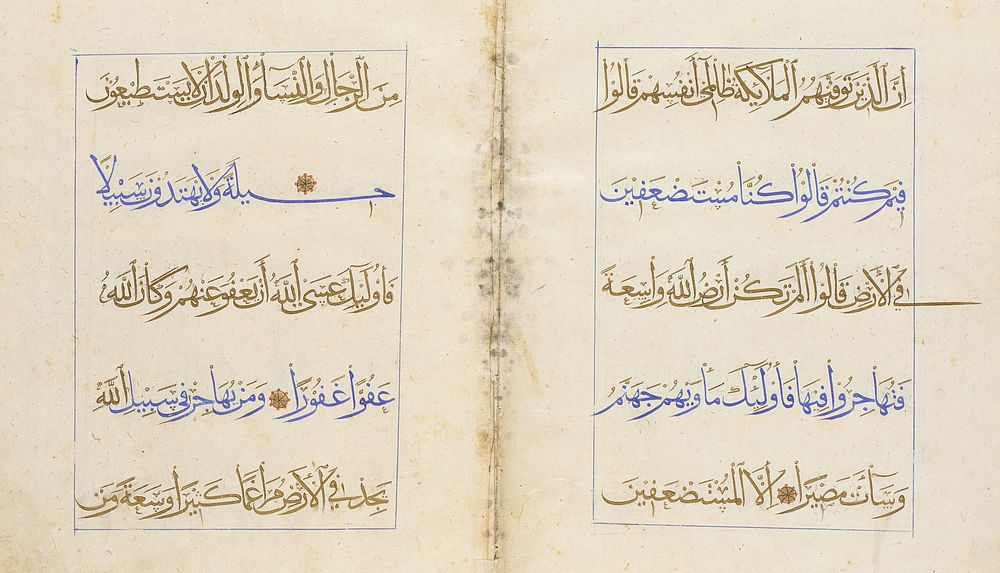 أَنَّ ٱلَّذِينَ تَوَفَّيٰهُمُ ٱلْمَلَائِكَةُ ظَالِمِي أَنْفُسِهِمْ قَالُوا
فِيمَ كُنْتُمْ قَالُوا كُنَّا مُسْتَضْعَفِينَ
فِي ٱلْأَرْضِ قَالُوا أَلَمْ تَكُنْ أَرْضُ ٱللَّهِ وَاسِعَةً
فَتُهَاجِرُوا فِيهَا فَأُولَٰئِكَ مَأْوَيٰهُمْ جَهَنَّمُ
وَسَاءَتْ مَصِيرًا إِلَّا ٱلْمُسْتَضْعَفِينَ
مِنَ ٱلرِّجَالِ وَٱلنِّسَاءِ وَٱلْوِلْدَانِ لَا يَسْتَطِيعُونَ
حِيلَةً وَلَا يَهْتَدُونَ سَبِيلًا
فَأُولَٰئِكَ عَسَى ٱللَّهُ أَنْ يَعْفُوَ عَنْهُمْ وَكَانَ ٱللَّهُ
عَفُوًّا غَفُورًا وَمَنْ يُهَاجِرْ فِي سَبِيلِ ٱللَّهِ
يَجِدْ فِي ٱلْأَرْضِ مُرَاغَمًا كَثِيرًا وَسَعَةً وَمَنْ